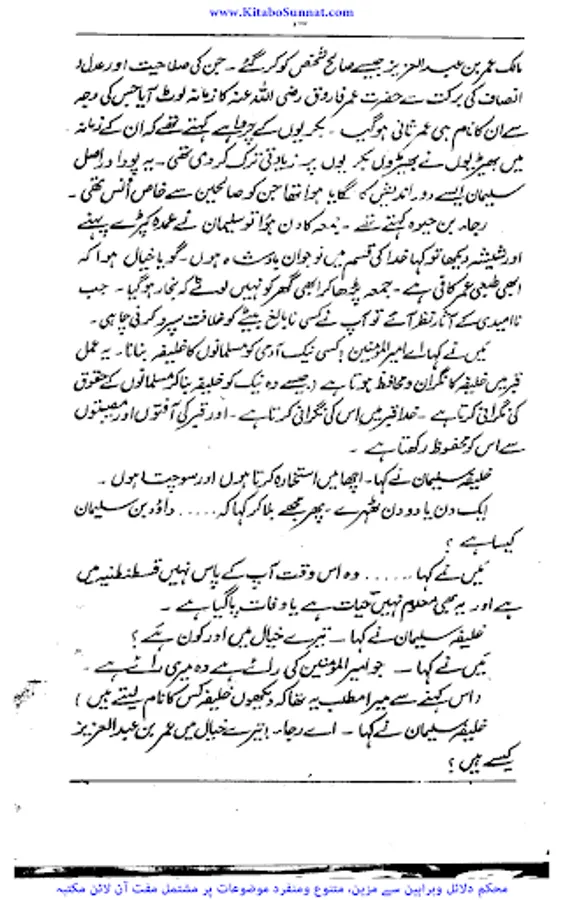 www.KitaboSunnat.com
مالک عمر بن عبدالعزیز جیسے صالح شخص کو کر گئے۔ جن کی صلاحیت اور عدل و
انصاف کی برکت سے حضرت عمر فاروق رضی اللہ عنہ کا زمانہ لوٹ آیا جس کی وجہ
سے ان کا نام ہی عمر ثانی ہو گیا۔ بکریوں کے چرواہے کہتے تھے کہ ان کے زمانہ
میں بھیڑیوں نے بھیڑوں بکریوں پر زیادتی ترک کر دی تھی۔ یہ پودا دراصل
سلیمان ایسے دور اندیش کا لگایا ہوا تھا جن کو صالحین سے خاص اُنس تھی۔
رجاء بن حیوہ کہتے تھے۔ جمعہ کا دن ہوا تو سلیمان نے عمدہ کپڑے پہنے
اور شیشہ دیکھا تو کہا خدا کی قسم میں نوجوان بادشاہ ہوں۔ گویا خیال ہوا کہ
ابھی طبعی عمر کافی ہے۔ جمعہ پڑھا کر ابھی گھر کو نہیں لوٹے کہ بخار ہو گیا۔ جب
نا امیدی کے آثار نظر آئے تو آپ نے کسی نابالغ بیٹے کو خلافت سپرد کرنی چاہی۔
میں نے کہا اے امیر المؤمنین! کسی نیک آدمی کو مسلمانوں کا خلیفہ بنانا۔ یہ عمل
قبر میں خلیفہ کا نگران و محافظ ہوتا ہے (جیسے وہ نیک کو خلیفہ بنا کر مسلمانوں کے حقوق
کی نگرانی کرتا ہے۔ خدا قبر میں اس کی نگرانی کرتا ہے۔ اور قبر کی آفتوں اور مصیبتوں
سے اس کو محفوظ رکھتا ہے۔
خلیفہ سلیمان نے کہا۔ اچھا میں استخارہ کرتا ہوں اور سوچتا ہوں۔
ایک دن یا دو دن ٹھہرے۔ پھر مجھے بلا کر کہا کہ ..... داؤد بن سلیمان
کیسا ہے؟
میں نے کہا ...... وہ اس وقت آپ کے پاس نہیں قسطنطنیہ میں
ہے اور یہ بھی معلوم نہیں حیات ہے یا وفات پا گیا ہے۔
خلیفہ سلیمان نے کہا۔ تیرے خیال میں اور کون ہے؟
میں نے کہا۔ جو امیر المؤمنین کی رائے ہے وہ میری رائے ہے۔
(اس کہنے سے میرا مطلب یہ تھا کہ دیکھوں خلیفہ کس کا نام لیتے ہیں)
خلیفہ سلیمان نے کہا۔ اے رجاء! تیرے خیال میں عمر بن عبدالعزیز
کیسے ہیں؟
محکم دلائل وبراہین سے مزین، متنوع ومنفرد موضوعات پر مشتمل مفت آن لائن مکتبہ